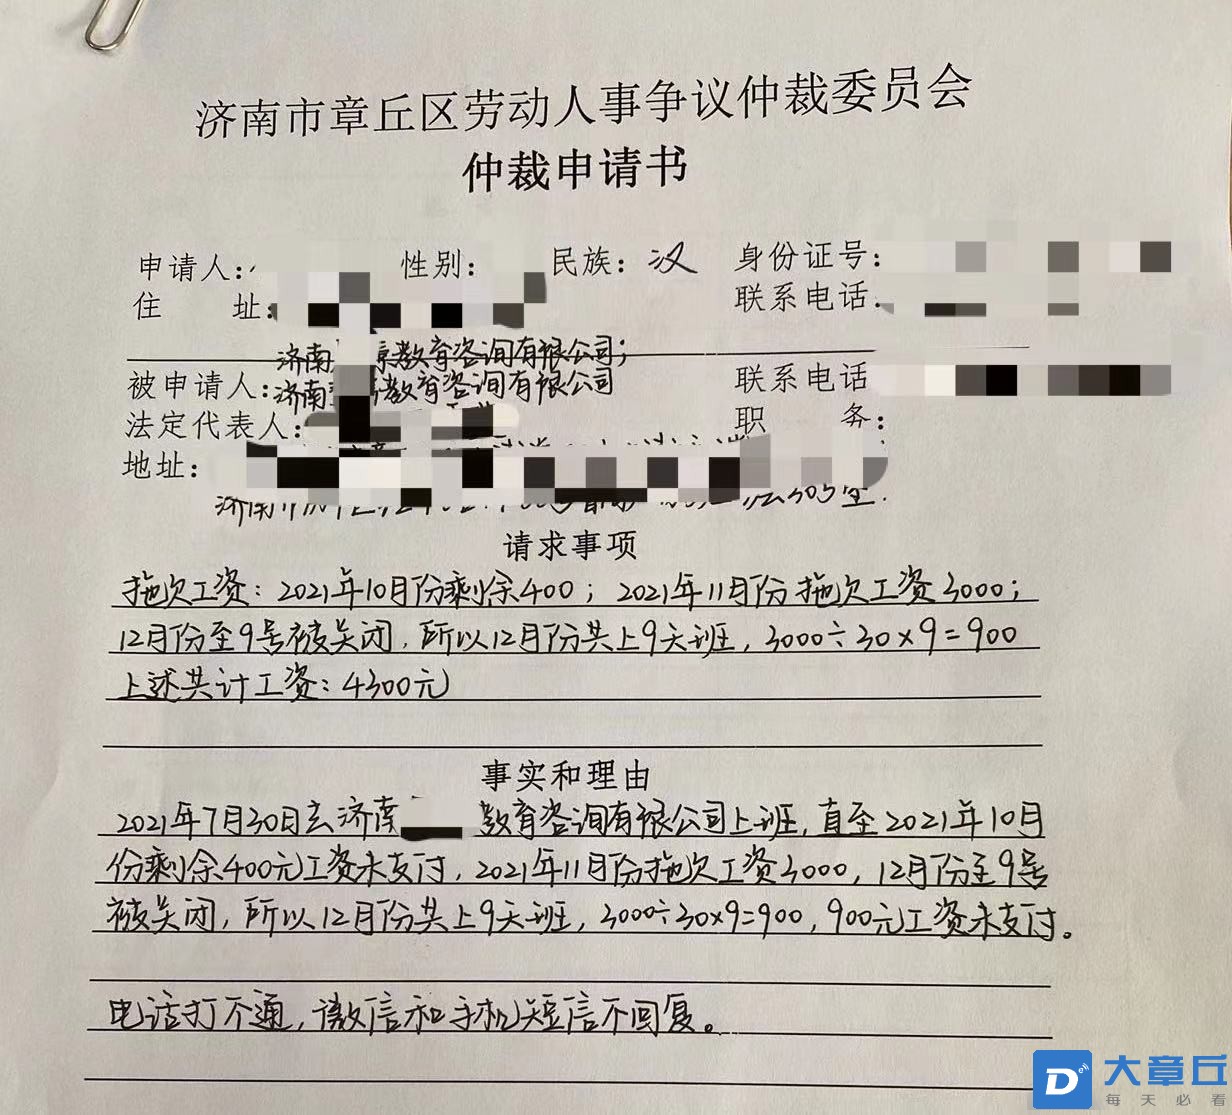 济南市章丘区劳动人事争议仲裁委员会
仲裁申请书
申请人: 性别: 民族: 汉 身份证号:
住 址: 联系电话
济南 教育咨询有限公司;
被申请人: 济南 教育咨询有限公司 联系电话
法定代表人: 职 务:
地址:
济南 室.
请求事项
拖欠工资: 2021年10月份剩余400; 2021年11月份拖欠工资3000;
12月份至9号被关闭,所以12月份共上9天班, 3000÷30×9=900
上述共计工资: 4300元
事实和理由
2021年7月30日去济南 教育咨询有限公司上班,直至2021年10月
份剩余400元工资未支付, 2021年11月份拖欠工资3000, 12月份至9号
被关闭,所以12月份共上9天班, 3000÷30×9=900, 900元工资未支付。
电话打不通,微信和手机短信不回复。
D
大章丘
每天必看